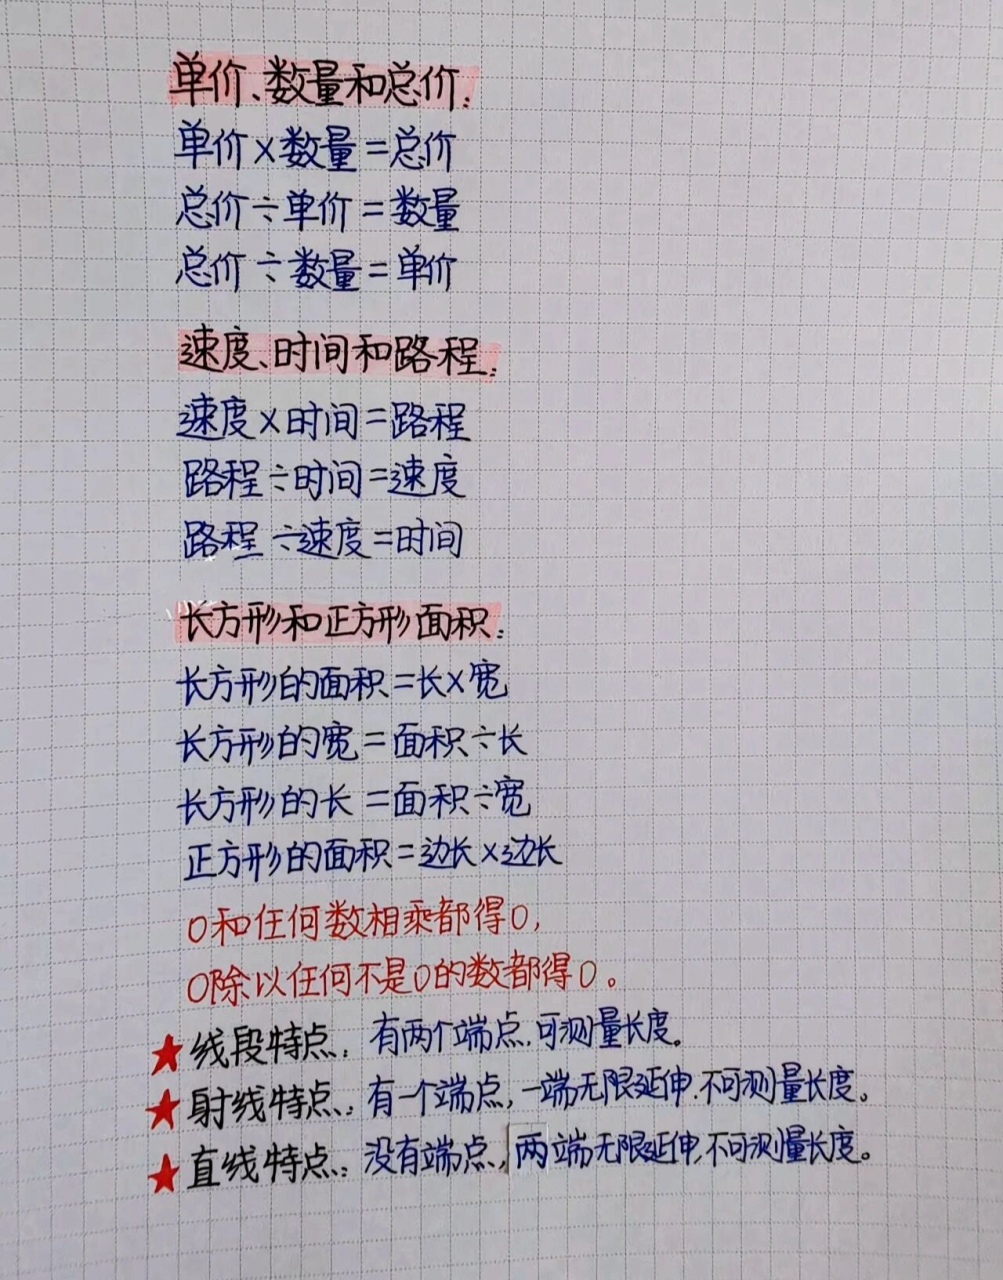 单价、数量和总价:
单价×数量=总价
总价÷单价=数量
总价÷数量=单价
速度、时间和路程:
速度×时间=路程
路程÷时间=速度
路程÷速度=时间
长方形和正方形面积:
长方形的面积=长×宽
长方形的宽=面积÷长
长方形的长=面积÷宽
正方形的面积=边长×边长
0和任何数相乘都得0,
0除以任何不是0的数都得0。
★线段特点:有两个端点,可测量长度。
★射线特点:有一个端点,一端无限延伸,不可测量长度。
★直线特点:没有端点,两端无限延伸,不可测量长度。